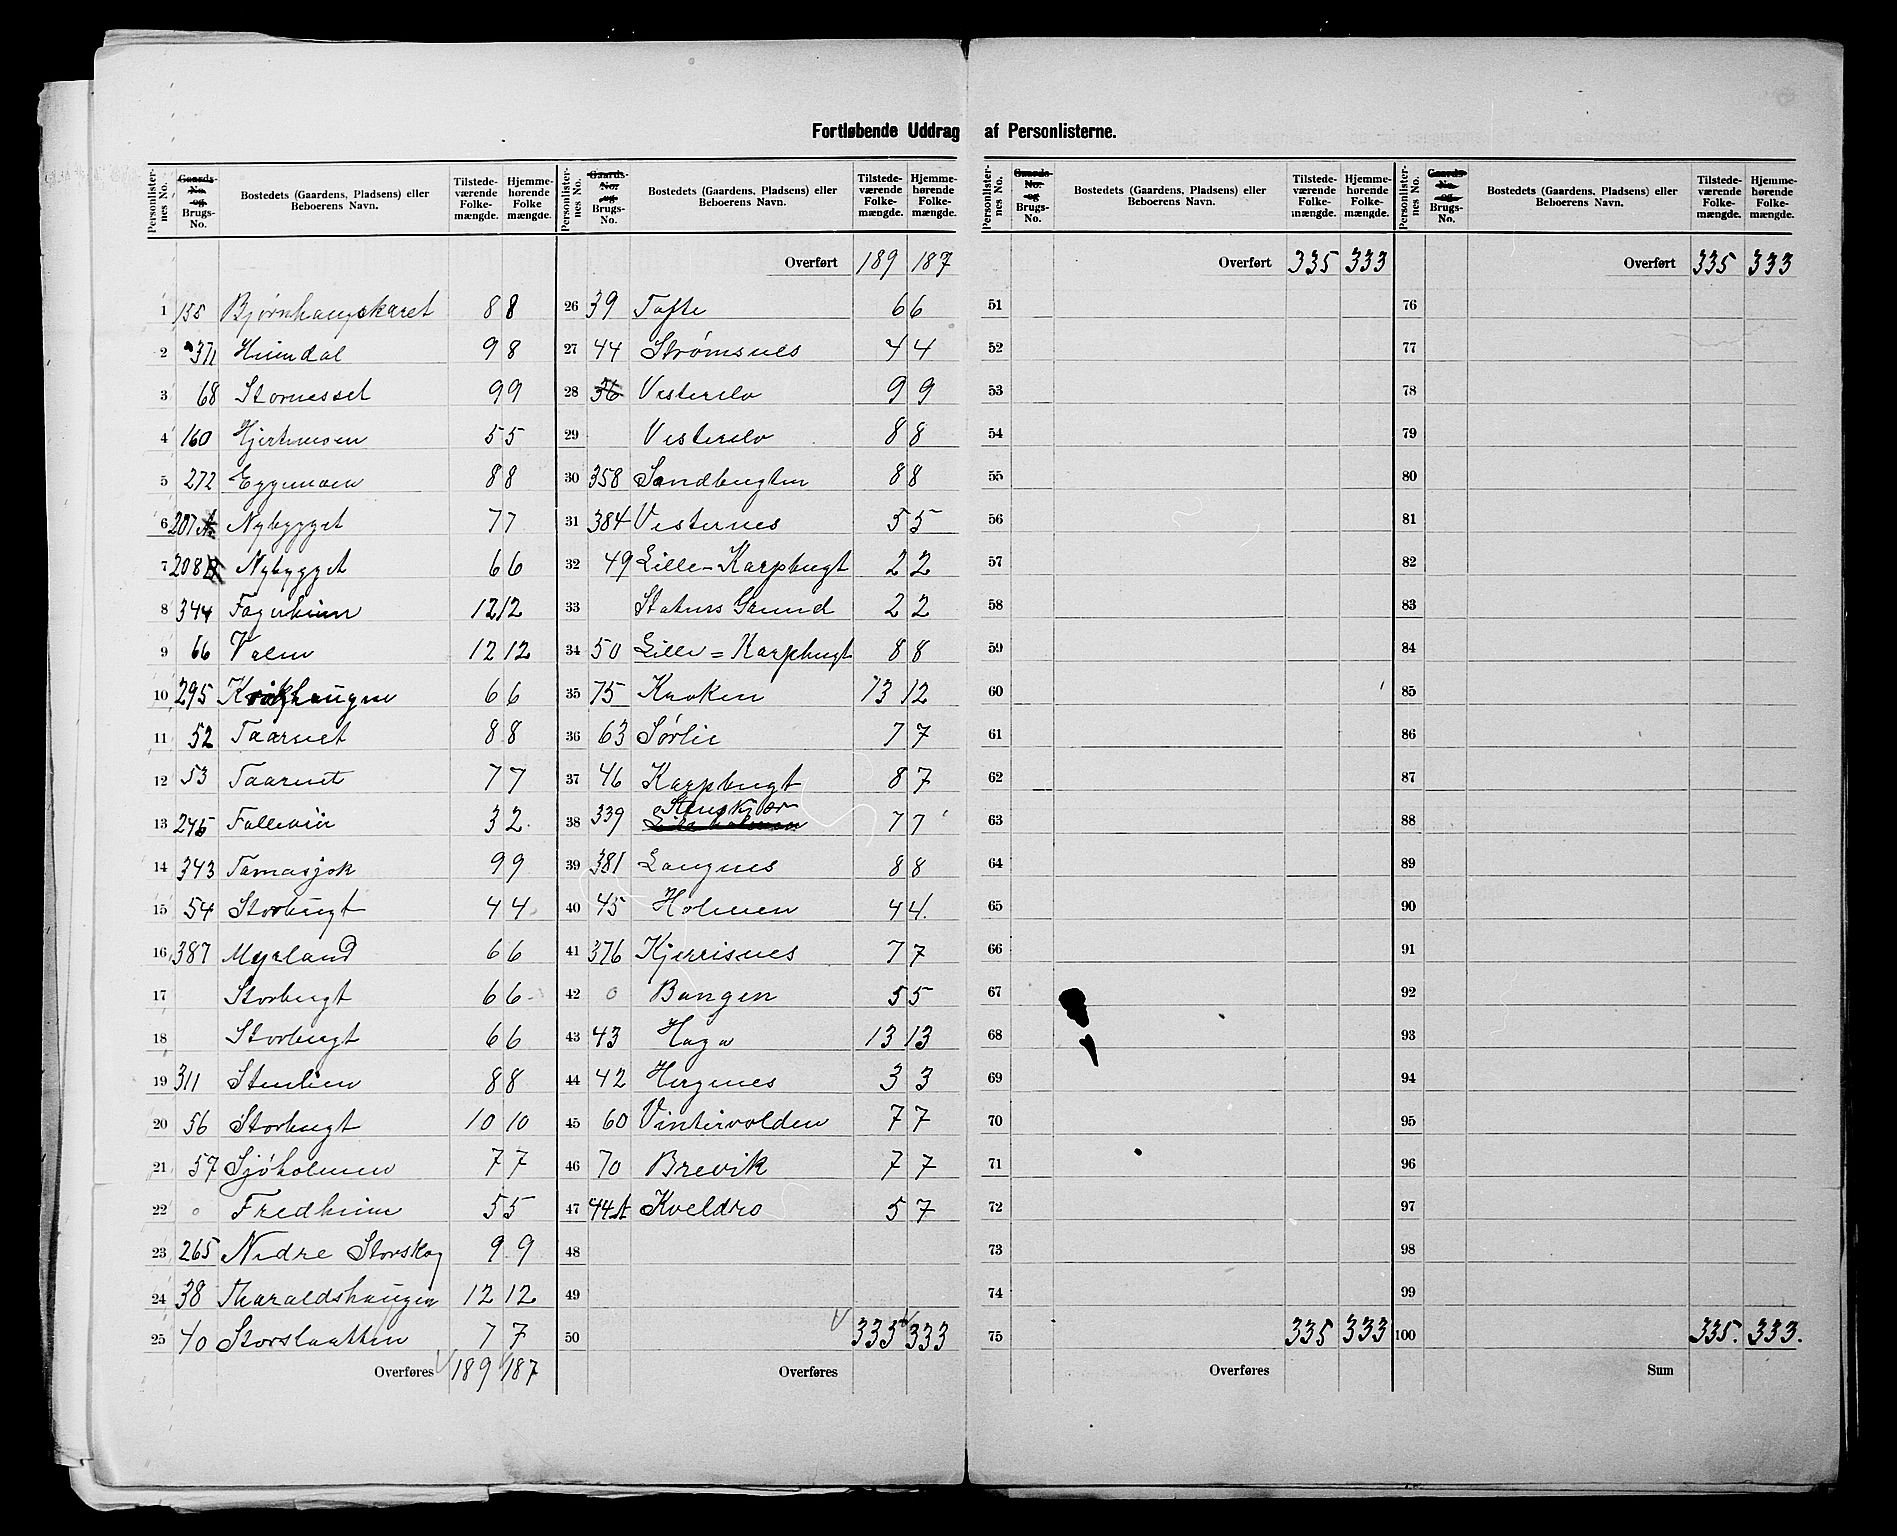 Fortløbende Uddrag af Personlisterne.
Personlisternes No. Gaards-No. og Brugs-No. Bostedets (Gaardens, Pladsens) eller Beboerens Navn. Tilstedeværende Folkemængde. Hjemmehørende Folkemængde.
1 155 Bjørnhaugskaret 8 8
2 371 Heimdal 9 8
3 68 Stornesset 9 9
4 160 5 5
5 272 Eggemoen 8 8
6 207 A Nybygget 7 7
7 208 B Nybygget 6 6
8 344 Fagerheim 12 12
9 66 Valen 12 12
10 295 Krokhaugen 6 6
11 52 Taarnet 8 8
12 53 Taarnet 7 7
13 245 3 2
14 343 Tamasjok 9 9
15 54 Storbugt 4 4
16 387 Myrland 6 6
17 Storbugt 6 6
18 Storbugt 6 6
19 311 Stenlien 8 8
20 56 Storbugt 10 10
21 57 Sjøholmen 7 7
22 0 Fredheim 5 5
23 265 Nedre Storskog 9 9
24 38 Tharaldshaugen 12 12
25 40 Storslaatten 7 7
Overføres 189 187
Personlisternes No. Gaards-No. og Brugs-No. Bostedets (Gaardens, Pladsens) eller Beboerens Navn. Tilstedeværende Folkemængde. Hjemmehørende Folkemængde.
Overført 189 187
26 39 Tofte 6 6
27 44 Strømsnes 4 4
28 36 Vesterelv 9 9
29 Vesterelv 8 8
30 358 Sandbugten 8 8
31 384 Vesternes 5 5
32 49 Lille-Karpbugt 2 2
33 Statens Grund 2 2
34 50 Lille=Karpbugt 8 8
35 75 Kroken 13 12
36 63 Sørlie 7 7
37 46 Karpbugt 8 7
38 339 Stenskjær 7 7
39 381 Langnes 8 8
40 45 Holmen 4 4
41 376 Kjerrisnes 7 7
42 0 Bangen 5 5
43 43 Haga 13 13
44 42 3 3
45 60 Vintervolden 7 7
46 70 Brevik 7 7
47 44A Kveldro 5 7
48
49
50 335 333
Overføres
Personlisternes No. Gaards-No. og Brugs-No. Bostedets (Gaardens, Pladsens) eller Beboerens Navn. Tilstedeværende Folkemængde. Hjemmehørende Folkemængde.
Overført 335 333
51
52
53
54
55
56
57
58
59
60
61
62
63
64
65
66
67
68
69
70
71
72
73
74
75 335 333
Overføres
Personlisternes No. Gaards-No. og Brugs-No. Bostedets (Gaardens, Pladsens) eller Beboerens Navn. Tilstedeværende Folkemængde. Hjemmehørende Folkemængde.
Overført 335 333
76
77
78
79
80
81
82
83
84
85
86
87
88
89
90
91
92
93
94
95
96
97
98
99
100 335. 333.
Sum